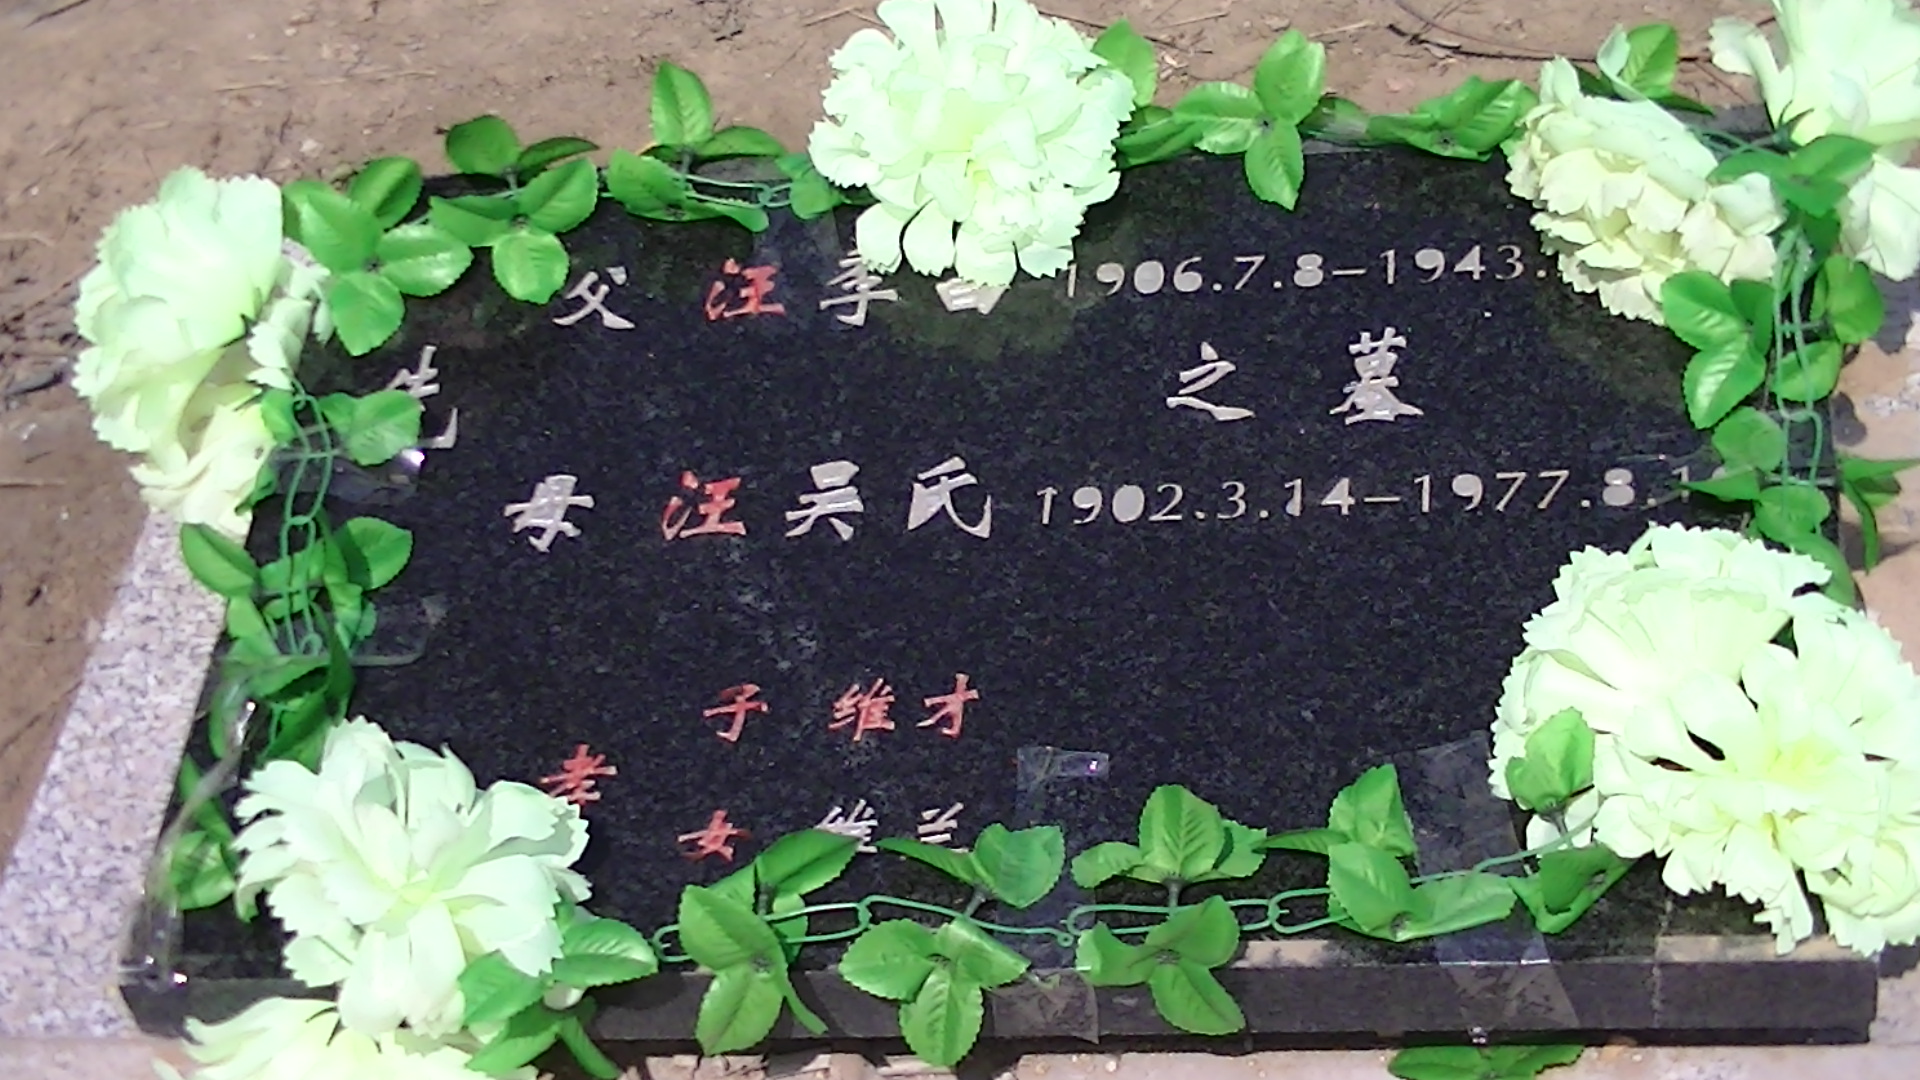 父 汪 1906.7.8–1943.
先 之 墓
母 汪 吴 氏 1902.3.14–1977.8.1
子 维 才
孝
女 维 兰